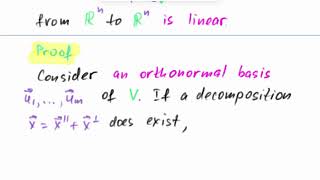 from ℝⁿ to ℝⁿ is linear.
Proof
Consider an orthonormal basis
u⃗₁, ..., u⃗ₘ of V. If a decomposition
x⃗ = x⃗ᴵᴵ + x⃗^⊥ does exist,